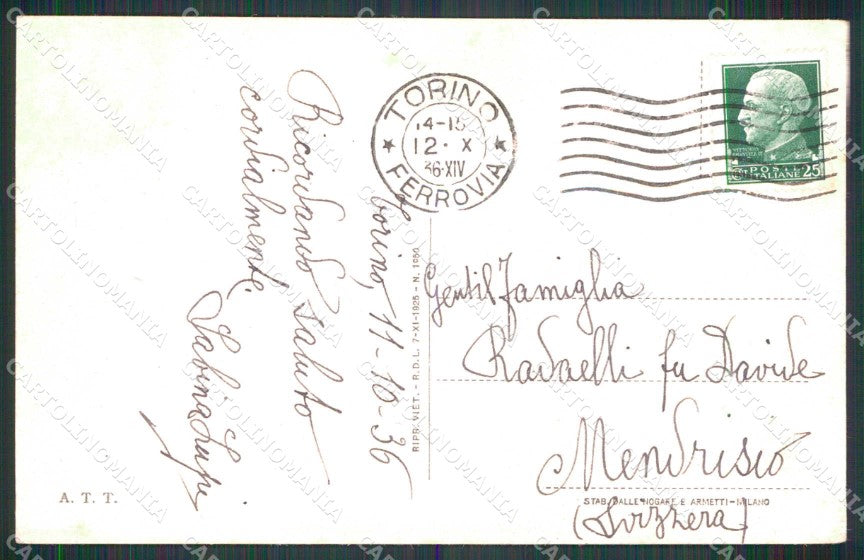 TORINO
14-15
12 · X
36·XIV
FERROVIA
POSTE
ITALIANE 25
Torino, 11-10-36
Ricordando saluto
cordialmente.
Sabina Lupi
Gentil Famiglia
Radaelli fu Davide
Mendrisio
(Svizzera)
RIPR. VIET. - R.D.L. 7-XI-1925 - N. 1050
STAB. DALLE NOGARE E ARMETTI - MILANO
A. T. T.
CARTOLINOMANIA